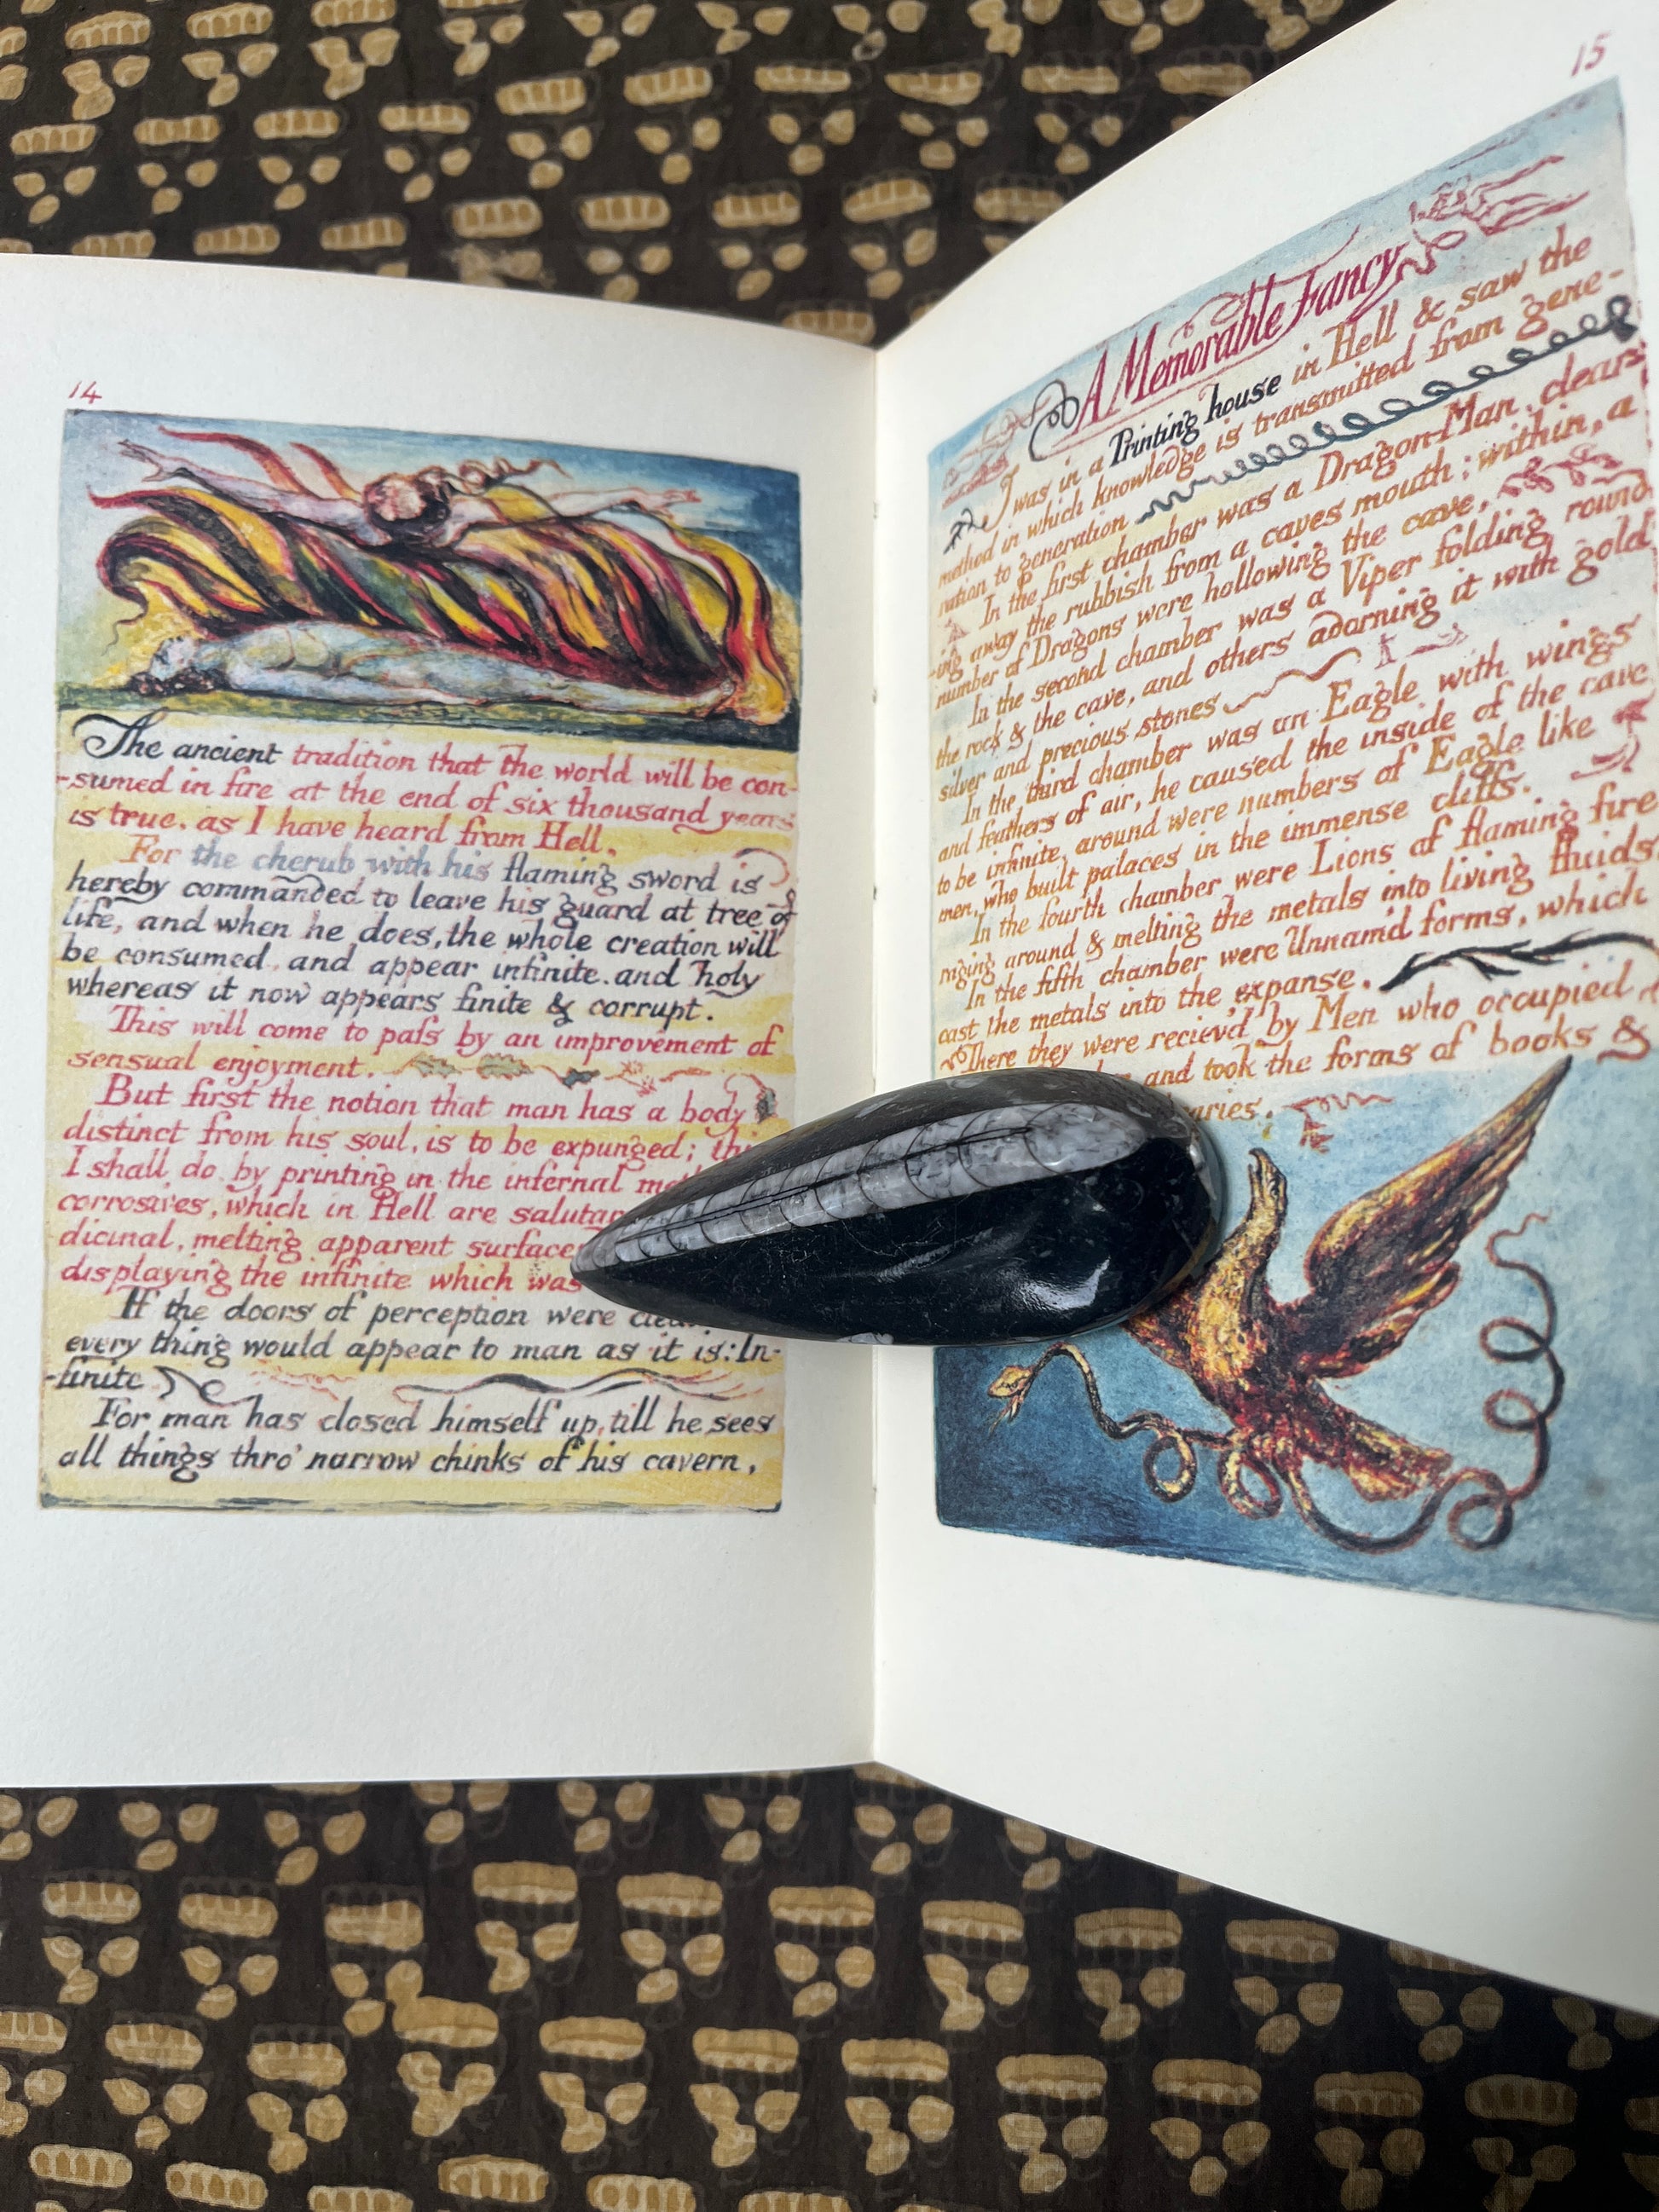 14
The ancient tradition that the world will be con-
-sumed in fire at the end of six thousand years
is true. as I have heard from Hell.
For the cherub with his flaming sword is
hereby commanded to leave his guard at tree of
life, and when he does, the whole creation will
be consumed, and appear infinite. and holy
whereas it now appears finite & corrupt.
This will come to paſs by an improvement of
sensual enjoyment.
But first the notion that man has a body
distinct from his soul, is to be expunged; this
I shall do, by printing in the infernal
corrosives, which in Hell are salutary
dicinal, melting apparent surfaces
displaying the infinite which was
If the doors of perception were
every thing would appear to man as it is: In-
-finite
For man has closed himself up, till he sees
all things thro' narrow chinks of his cavern.
15
A Memorable Fancy
I was in a Printing house in Hell & saw the
method in which knowledge is transmitted from gene-
ration to generation
In the first chamber was a Dragon-Man, clear-
-ing away the rubbish from a caves mouth; within, a
number of Dragons were hollowing the cave,
In the second chamber was a Viper folding round
the rock & the cave, and others adorning it with gold
silver and precious stones
In the third chamber was an Eagle with wings
and feathers of air, he caused the inside of the cave
to be infinite, around were numbers of Eagle like
men, who built palaces in the immense cliffs.
In the fourth chamber were Lions of flaming fire
raging around & melting the metals into living fluids.
In the fifth chamber were Unnam'd forms, which
cast the metals into the expanse.
There they were reciev'd by Men who occupied
and took the forms of books &